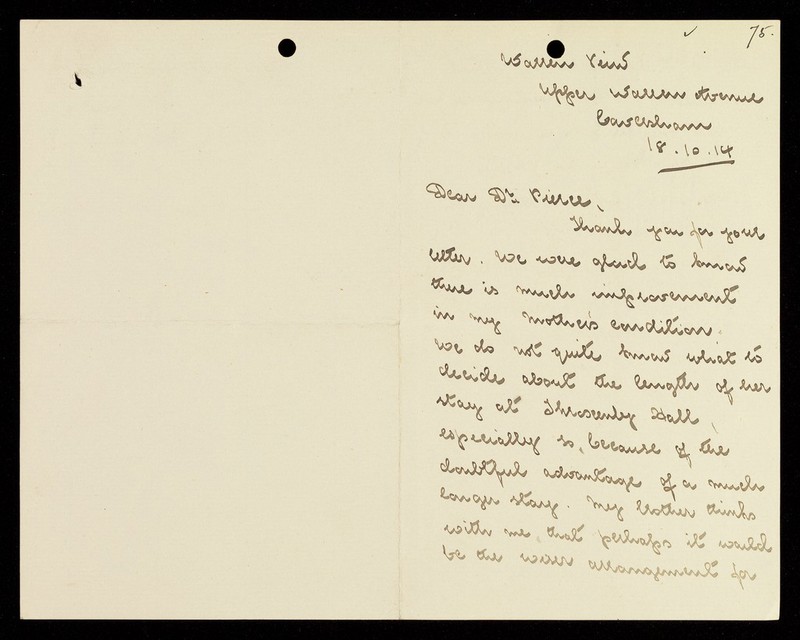 75.
Warren View
Upper Warren Avenue
Caversham
18.10.14
Dear Dr. Pierce,
Thank you for your
letter. We were glad to know
there is much improvement
in my mother's condition.
We do not quite know what to
decide about the length of her
stay at Throxenby Hall,
especially so, because of the
doubtful advantage of a much
longer stay. My brother thinks
with me, that perhaps it would
be the wiser arrangement for